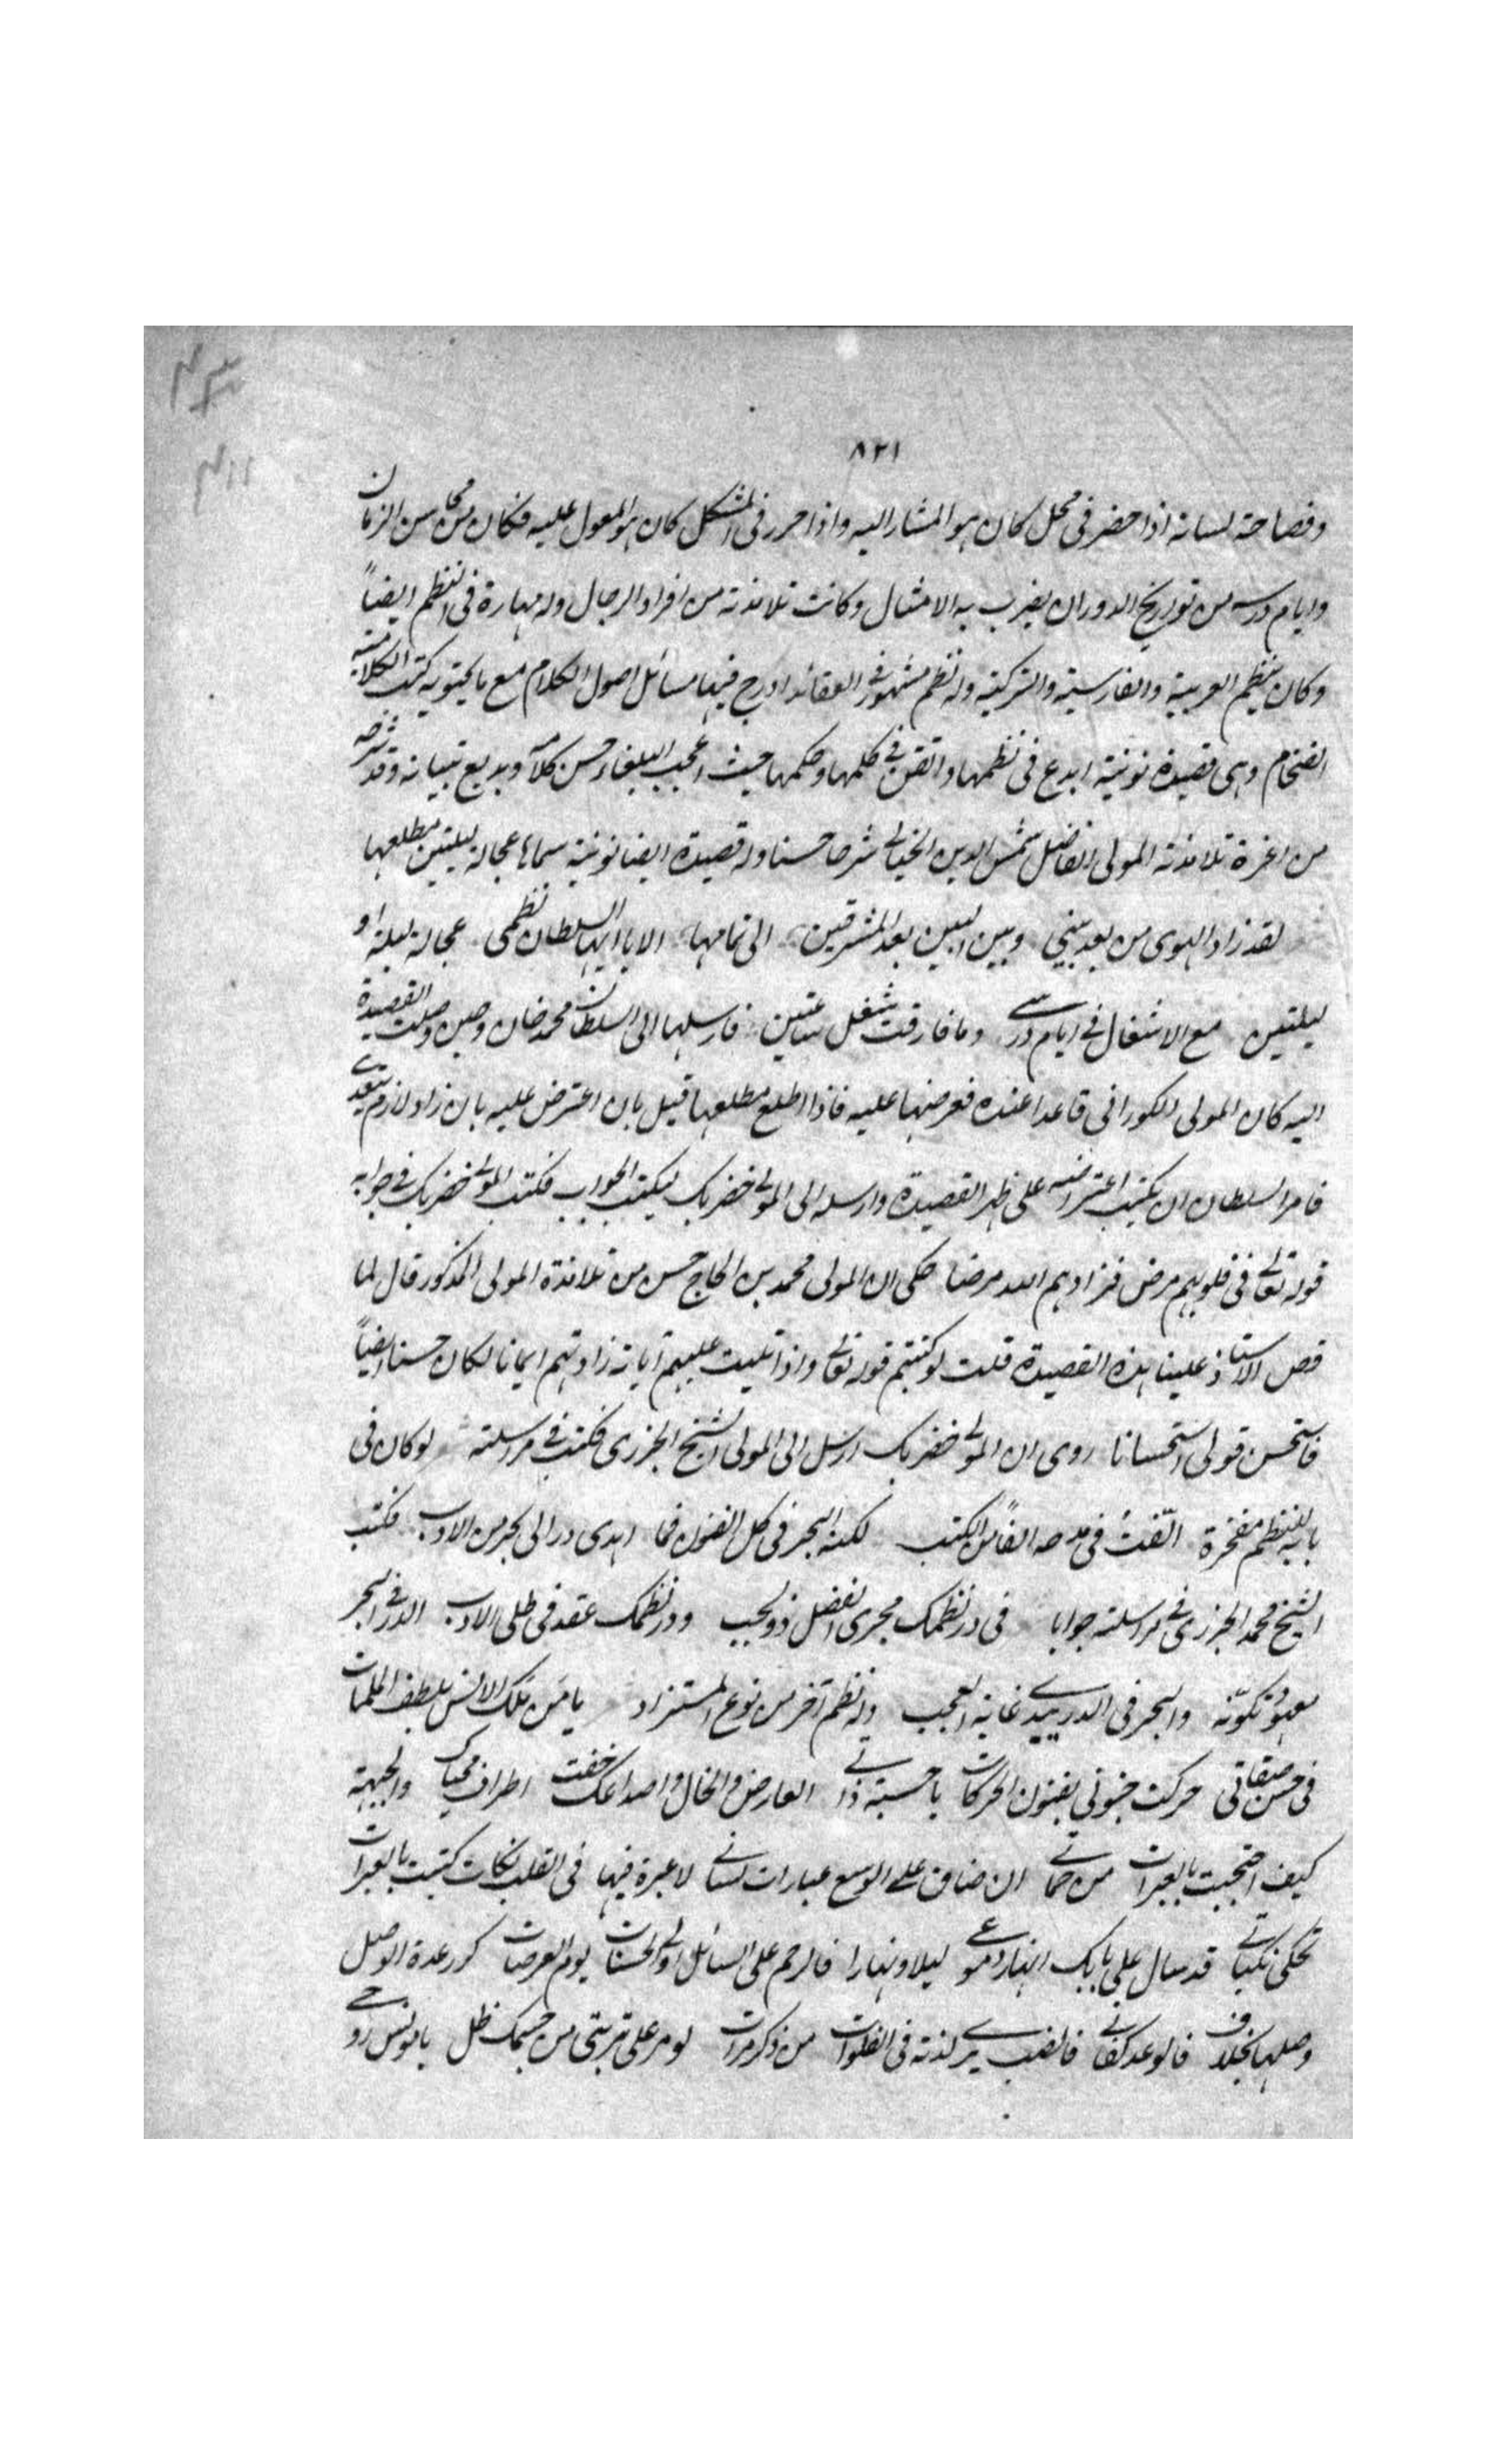 ٨٢١
وفصاحة لسانه اذا حضر فى محل كان هو المشار اليه واذا حرر فى المشكل كان هو المعول عليه فكان من محاسن الزمان
وايام درسه من تواريخ الدوران يضرب به الامثال وكانت تلامذته من افراد الرجال وله مهارة فى النظم ايضاً
وكان ينظم العربية والفارسية والتركية وله نظم مشهور فى العقائد ادرج فيها مسائل اصول الكلام مع ما يحتويه كتب الكلامية
الفخام وهى قصيدة نونية ابدع فى نظمها واتقن فى كلمها وحكمها حيث اعجب البلغاء حسن كلامه وبديع تبيانه وقد شرحه
من اغرة تلامذته المولى الفاضل شمس الدين الخيالى شرحا حسنا وله قصيدة ايضا نونية سماها عجالة ليلتين مطلعها
لقد زاد الهوى من بعد بينى وبين البين بعد المشرقين الى تمامها الا يا ايها السلطان نظمى عجالة ليلة او
ليلتين مع الاشغال فى ايام درسى وما فارقت شغل ساعتين فارسلها الى السلطان محمد خان وحين وصلت القصيدة
اليه كان المولى الكورانى قاعدا عنده فعرضها عليه فاذا اطلع مطلعها قيل بان اعترض عليه بان زاد لازم يتعدى
فامر السلطان ان يكتب اعتراضه على ظهر القصيدة وارسله الى المولى خضر بك ليكتب الجواب فكتب المولى خضر بك فى جوابه
قوله تعالى فى قلوبهم مرض فزادهم الله مرضا حكى ان المولى محمد بن الحاج حسن من تلامذة المولى المذكور قال لما
قص الاستاذ علينا هذه القصيدة قلت لو كتبتم قوله تعالى واذا تليت عليهم آياته زادتهم ايمانا لكان حسنا ايضاً
فاستحسن قولى استحسانا روى ان المولى خضر بك ارسل الى المولى الشيخ الجزرى فكتب فى مراسلته لو كان فى
بابه للنظم مفخرة الّفت فى مدحه الفاً من الكتب لكنه البحر فى كل الفنون فما اهدى در الى بحر من الادب فكتب
الشيخ محمد الجزرى فى مراسلته جوابا فى در نظمك مجرى الفضل ذو لجب ودر نظمك عقد فى طلى الادب الدر فى البحر
معهود تكوّنه والبحر فى الدر يبدى غاية العجب وله نظم آخر من نوع المستزاد يا من ملك الانس بلطف الملكات
فى حسن صفاتى حركت جنونى بفنون الحركات يا حسبة ذاتى العارض والخال واصداغك حفت اطراف محياك والجبهة
كيف احتجبت بالعبرات من حماتى ان ضاق على الوسع عبارات لسانى لا عبرة فيها فى القلب نكات كتبت بالعبرات
تحكى نكباتى قد سال على بابك انهار دموعى ليلا ونهارا فالرحم على السائل اولى الحسنات يوم العرصات كرر عدة الوصل
وصلها بخلاف فالوعد كفانى فالصب يرى لذته فى الفلوات من ذكر مرات لو مر على تربتى من جسمك ظل يا مونس روحى